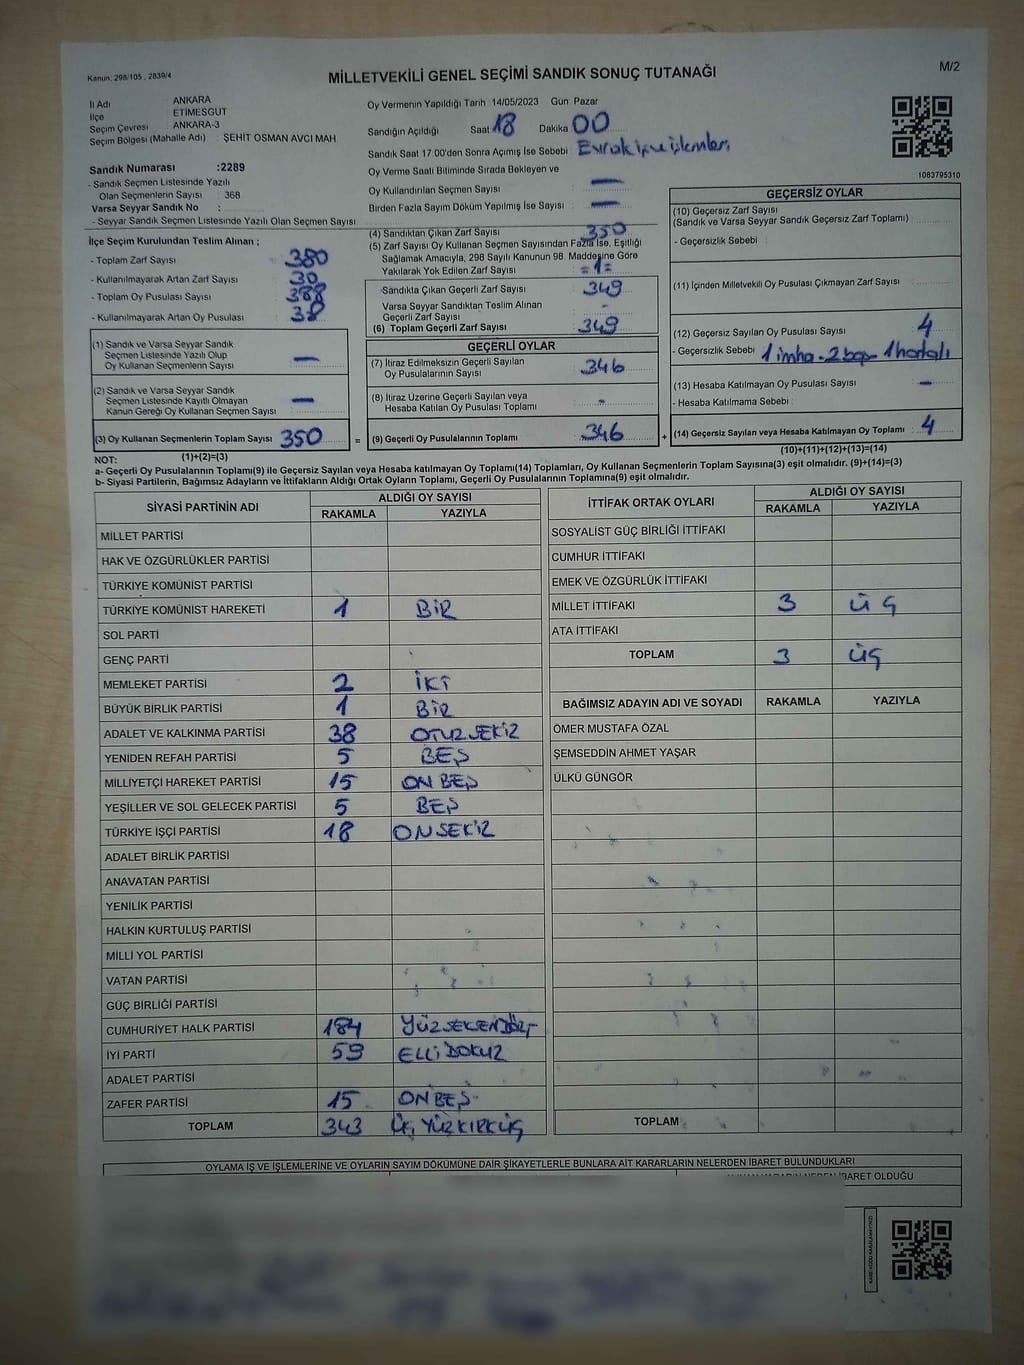 Kanun, 298/105 , 2839/4
MİLLETVEKİLİ GENEL SEÇİMİ SANDIK SONUÇ TUTANAĞI
M/2
İl Adı ANKARA
İlçe ETİMESGUT
Seçim Çevresi ANKARA-3
Seçim Bölgesi (Mahalle Adı) : ŞEHİT OSMAN AVCI MAH
Oy Vermenin Yapıldığı Tarih :14/05/2023 Gün: Pazar
Sandığın Açıldığı Saat 18 Dakika 00
Sandık Saat 17:00'den Sonra Açımış İse Sebebi : Evrak iş ve işlemleri
Oy Verme Saati Bitiminde Sırada Bekleyen ve
Oy Kullandırılan Seçmen Sayısı : —
Birden Fazla Sayım Döküm Yapılmış İse Sayısı : —
1083795310
Sandık Numarası :2289
- Sandık Seçmen Listesinde Yazılı
Olan Seçmenlerin Sayısı : 368
Varsa Seyyar Sandık No :
- Seyyar Sandık Seçmen Listesinde Yazılı Olan Seçmen Sayısı :
İlçe Seçim Kurulundan Teslim Alınan ;
- Toplam Zarf Sayısı : 380
- Kullanılmayarak Artan Zarf Sayısı : 30
- Toplam Oy Pusulası Sayısı : 388
- Kullanılmayarak Artan Oy Pusulası : 38
(1) Sandık ve Varsa Seyyar Sandık
Seçmen Listesinde Yazılı Olup
Oy Kullanan Seçmenlerın Sayısı : —
(2) Sandık ve Varsa Seyyar Sandık
Seçmen Listesinde Kayıtlı Olmayan
Kanun Gereği Oy Kullanan Seçmen Sayısı : —
(3) Oy Kullanan Seçmenlerin Toplam Sayısı : 350
(1)+(2)=(3)
(4) Sandıktan Çıkan Zarf Sayısı : 350
(5) Zarf Sayısı Oy Kullanan Seçmen Sayısından Fazla İse, Eşitliği
Sağlamak Amacıyla, 298 Sayılı Kanunun 98. Maddesine Göre
Yakılarak Yok Edilen Zarf Sayısı : =1=
Sandıkta Çıkan Geçerli Zarf Sayısı : 349
Varsa Seyyar Sandıktan Teslim Alınan
Geçerli Zarf Sayısı : -
(6) Toplam Geçerli Zarf Sayısı : 349
GEÇERLİ OYLAR
(7) İtiraz Edilmeksizin Geçerli Sayılan
Oy Pusulalarının Sayısı : 346
(8) İtiraz Üzerine Geçerli Sayılan veya
Hesaba Katılan Oy Pusulası Toplamı : -
= (9) Geçerli Oy Pusulalarının Toplamı : 346
GEÇERSİZ OYLAR
(10) Geçersiz Zarf Sayısı
(Sandık ve Varsa Seyyar Sandık Geçersiz Zarf Toplamı) :
- Geçersizlik Sebebi :
(11) İçinden Milletvekili Oy Pusulası Çıkmayan Zarf Sayısı :
(12) Geçersiz Sayılan Oy Pusulası Sayısı : 4
- Geçersizlik Sebebi : 1 imha - 2 boş 1 hatalı
(13) Hesaba Katılmayan Oy Pusulası Sayısı : -
- Hesaba Katılmama Sebebi :
+ (14) Geçersiz Sayılan veya Hesaba Katılmayan Oy Toplamı : 4
(10)+(11)+(12)+(13)=(14)
NOT:
a- Geçerli Oy Pusulalarının Toplamı(9) ile Geçersiz Sayılan veya Hesaba katılmayan Oy Toplamı(14) Toplamları, Oy Kullanan Seçmenlerin Toplam Sayısına(3) eşit olmalıdır. (9)+(14)=(3)
b- Siyasi Partilerin, Bağımsız Adayların ve İttifakların Aldığı Ortak Oyların Toplamı, Geçerli Oy Pusulalarının Toplamına(9) eşit olmalıdır.
SİYASİ PARTİNİN ADI ALDIĞI OY SAYISI
RAKAMLA YAZIYLA
MİLLET PARTİSİ
HAK VE ÖZGÜRLÜKLER PARTİSİ
TÜRKİYE KOMÜNİST PARTİSİ
TÜRKİYE KOMÜNİST HAREKETİ 1 BİR
SOL PARTİ
GENÇ PARTİ
MEMLEKET PARTİSİ 2 İKİ
BÜYÜK BİRLİK PARTİSİ 1 BİR
ADALET VE KALKINMA PARTİSİ 38 OTUZSEKİZ
YENİDEN REFAH PARTİSİ 5 BEŞ
MİLLİYETÇİ HAREKET PARTİSİ 15 ON BEŞ
YEŞİLLER VE SOL GELECEK PARTİSİ 5 BEŞ
TÜRKİYE İŞÇİ PARTİSİ 18 ONSEKİZ
ADALET BİRLİK PARTİSİ
ANAVATAN PARTİSİ
YENİLİK PARTİSİ
HALKIN KURTULUŞ PARTİSİ
MİLLİ YOL PARTİSİ
VATAN PARTİSİ
GÜÇ BİRLİĞİ PARTİSİ
CUMHURİYET HALK PARTİSİ 184 YÜZSEKSENDÖRT
İYİ PARTİ 59 ELLİDOKUZ
ADALET PARTİSİ
ZAFER PARTİSİ 15 ONBEŞ
TOPLAM 343 ÜÇYÜZKIRKÜÇ
İTTİFAK ORTAK OYLARI ALDIĞI OY SAYISI
RAKAMLA YAZIYLA
SOSYALİST GÜÇ BİRLİĞİ İTTİFAKI
CUMHUR İTTİFAKI
EMEK VE ÖZGÜRLÜK İTTİFAKI
MİLLET İTTİFAKI 3 ÜÇ
ATA İTTİFAKI
TOPLAM 3 ÜÇ
BAĞIMSIZ ADAYIN ADI VE SOYADI RAKAMLA YAZIYLA
ÖMER MUSTAFA ÖZAL
ŞEMSEDDİN AHMET YAŞAR
ÜLKÜ GÜNGÖR
TOPLAM
OYLAMA İŞ VE İŞLEMLERİNE VE OYLARIN SAYIM DÖKÜMÜNE DAİR ŞİKAYETLERLE BUNLARA AİT KARARLARIN NELERDEN İBARET BULUNDUKLARI
İBARET OLDUĞU